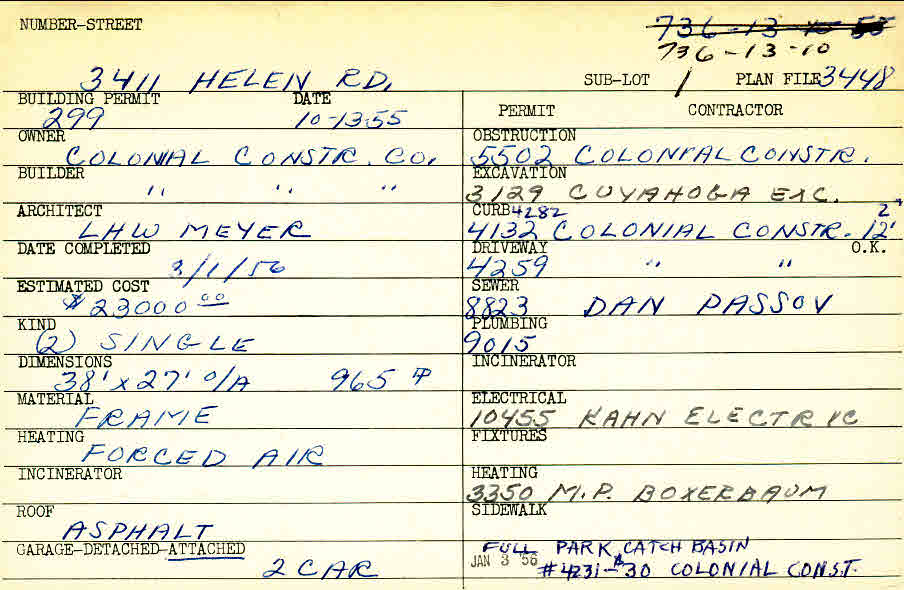 NUMBER-STREET
736-13-10 55
736-13-10
3411 HELEN RD. SUB-LOT 1 PLAN FILE 3448
BUILDING PERMIT DATE
299 10-13-55
OWNER
COLONIAL CONSTR. CO.
BUILDER
" " "
ARCHITECT
LHW MEYER
DATE COMPLETED
3/1/56
ESTIMATED COST
$23000 00
KIND
(2) SINGLE
DIMENSIONS
38' x 27' O/A 965
MATERIAL
FRAME
HEATING
FORCED AIR
INCINERATOR
ROOF
ASPHALT
GARAGE-DETACHED-ATTACHED
2 CAR
PERMIT CONTRACTOR
OBSTRUCTION
5502 COLONIAL CONSTR.
EXCAVATION
3129 CUYAHOGA EXC.
CURB 4282 2"
4132 COLONIAL CONSTR. 12'
DRIVEWAY O.K.
4259 " "
SEWER
8823 DAN PASSOV
PLUMBING
9015
INCINERATOR
ELECTRICAL
10455 KAHN ELECTRIC
FIXTURES
HEATING
3350 M.P. BOXERBAUM
SIDEWALK
FULL PARK CATCH BASIN
JAN 3 '56 #4231-$30 COLONIAL CONST.